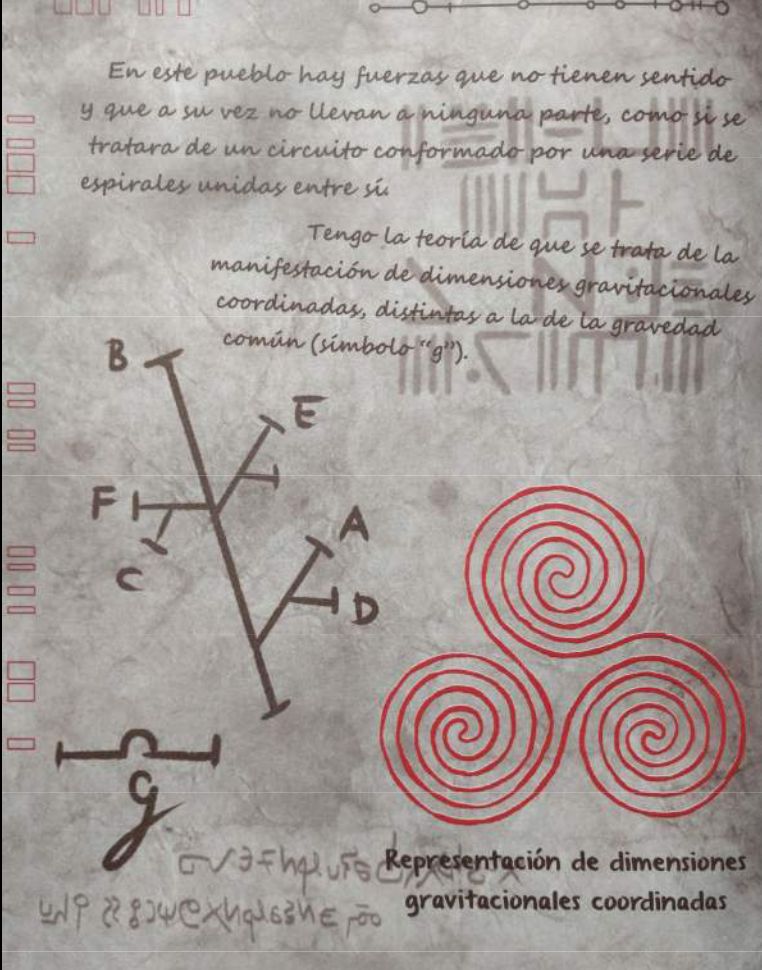 En este pueblo hay fuerzas que no tienen sentido
y que a su vez no llevan a ninguna parte, como si se
tratara de un circuito conformado por una serie de
espirales unidas entre sí.
Tengo la teoría de que se trata de la
manifestación de dimensiones gravitacionales
coordinadas, distintas a la de la gravedad
común (símbolo “g”).
B
E
F
A
C
D
g
Representación de dimensiones
gravitacionales coordinadas